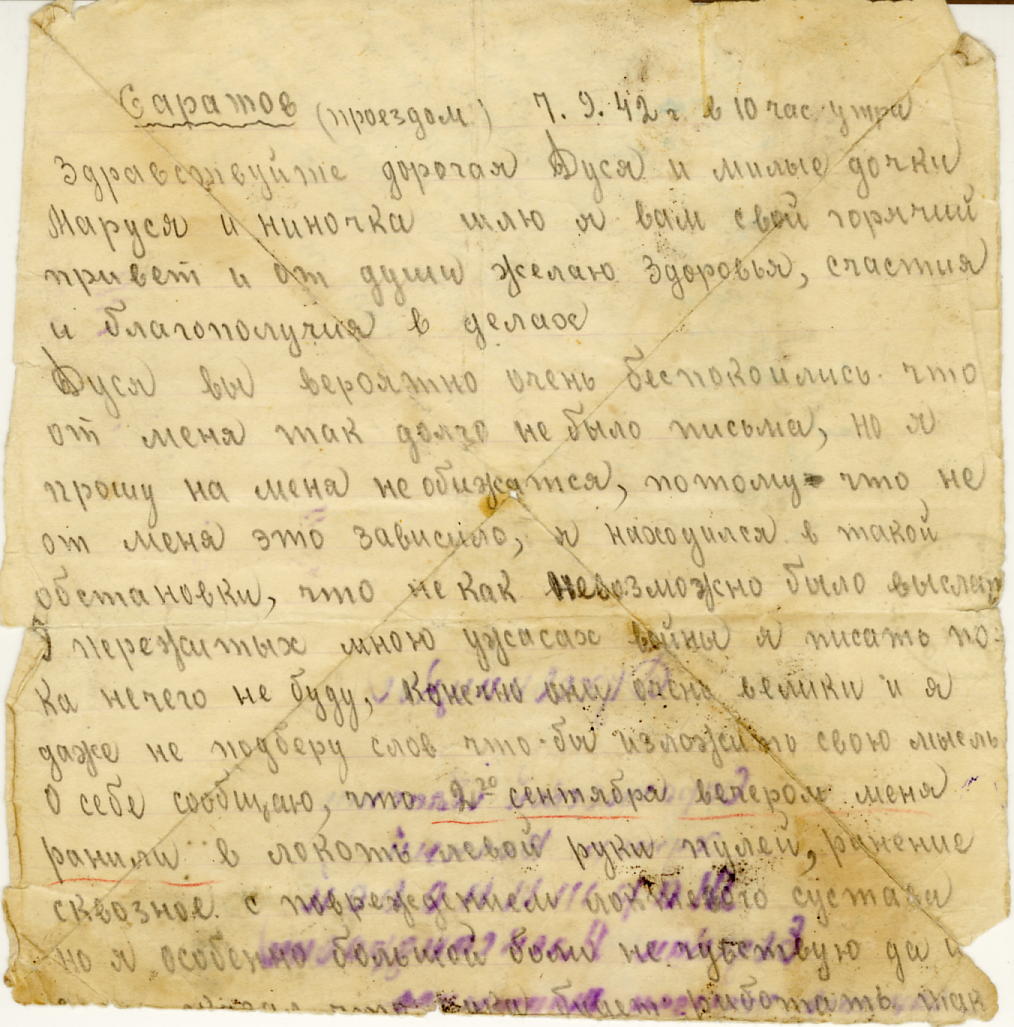 Саратов (проездом) 7.9.42 г. в 10 час. утра
Здравствуйте дорогая Дуся и милые дочки
Маруся и Ниночка шлю я вам свой горячий
привет и от души желаю здоровья, счастия
и благополучия в делах
Дуся вы вероятно очень беспокоились что
от меня так долго не было письма, но я
прошу на меня не обижатся, потому что не
от меня это зависило, я находился в такой
обстановки, что не как невозможно было выслать
О пережитых мною ужасах войны я писать по-
ка нечего не буду, конечно они очень велики и я
даже не подберу слов что-бы изложить свою мысль
О себе сообщаю, что 2го сентября вечером меня
ранили в локоть левой руки пулей, ранение
сквозное с повреждением локтевого сустава
но я особенно большой боли не чувствую да и
что рука будет работать так